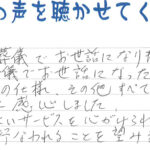 の声を聴かせてく
葬儀でお世話になりた
儀でお世話になった
の仕様、その他すべて
に感心しました。
いサービスを心がけられ
行なわれることを望みま